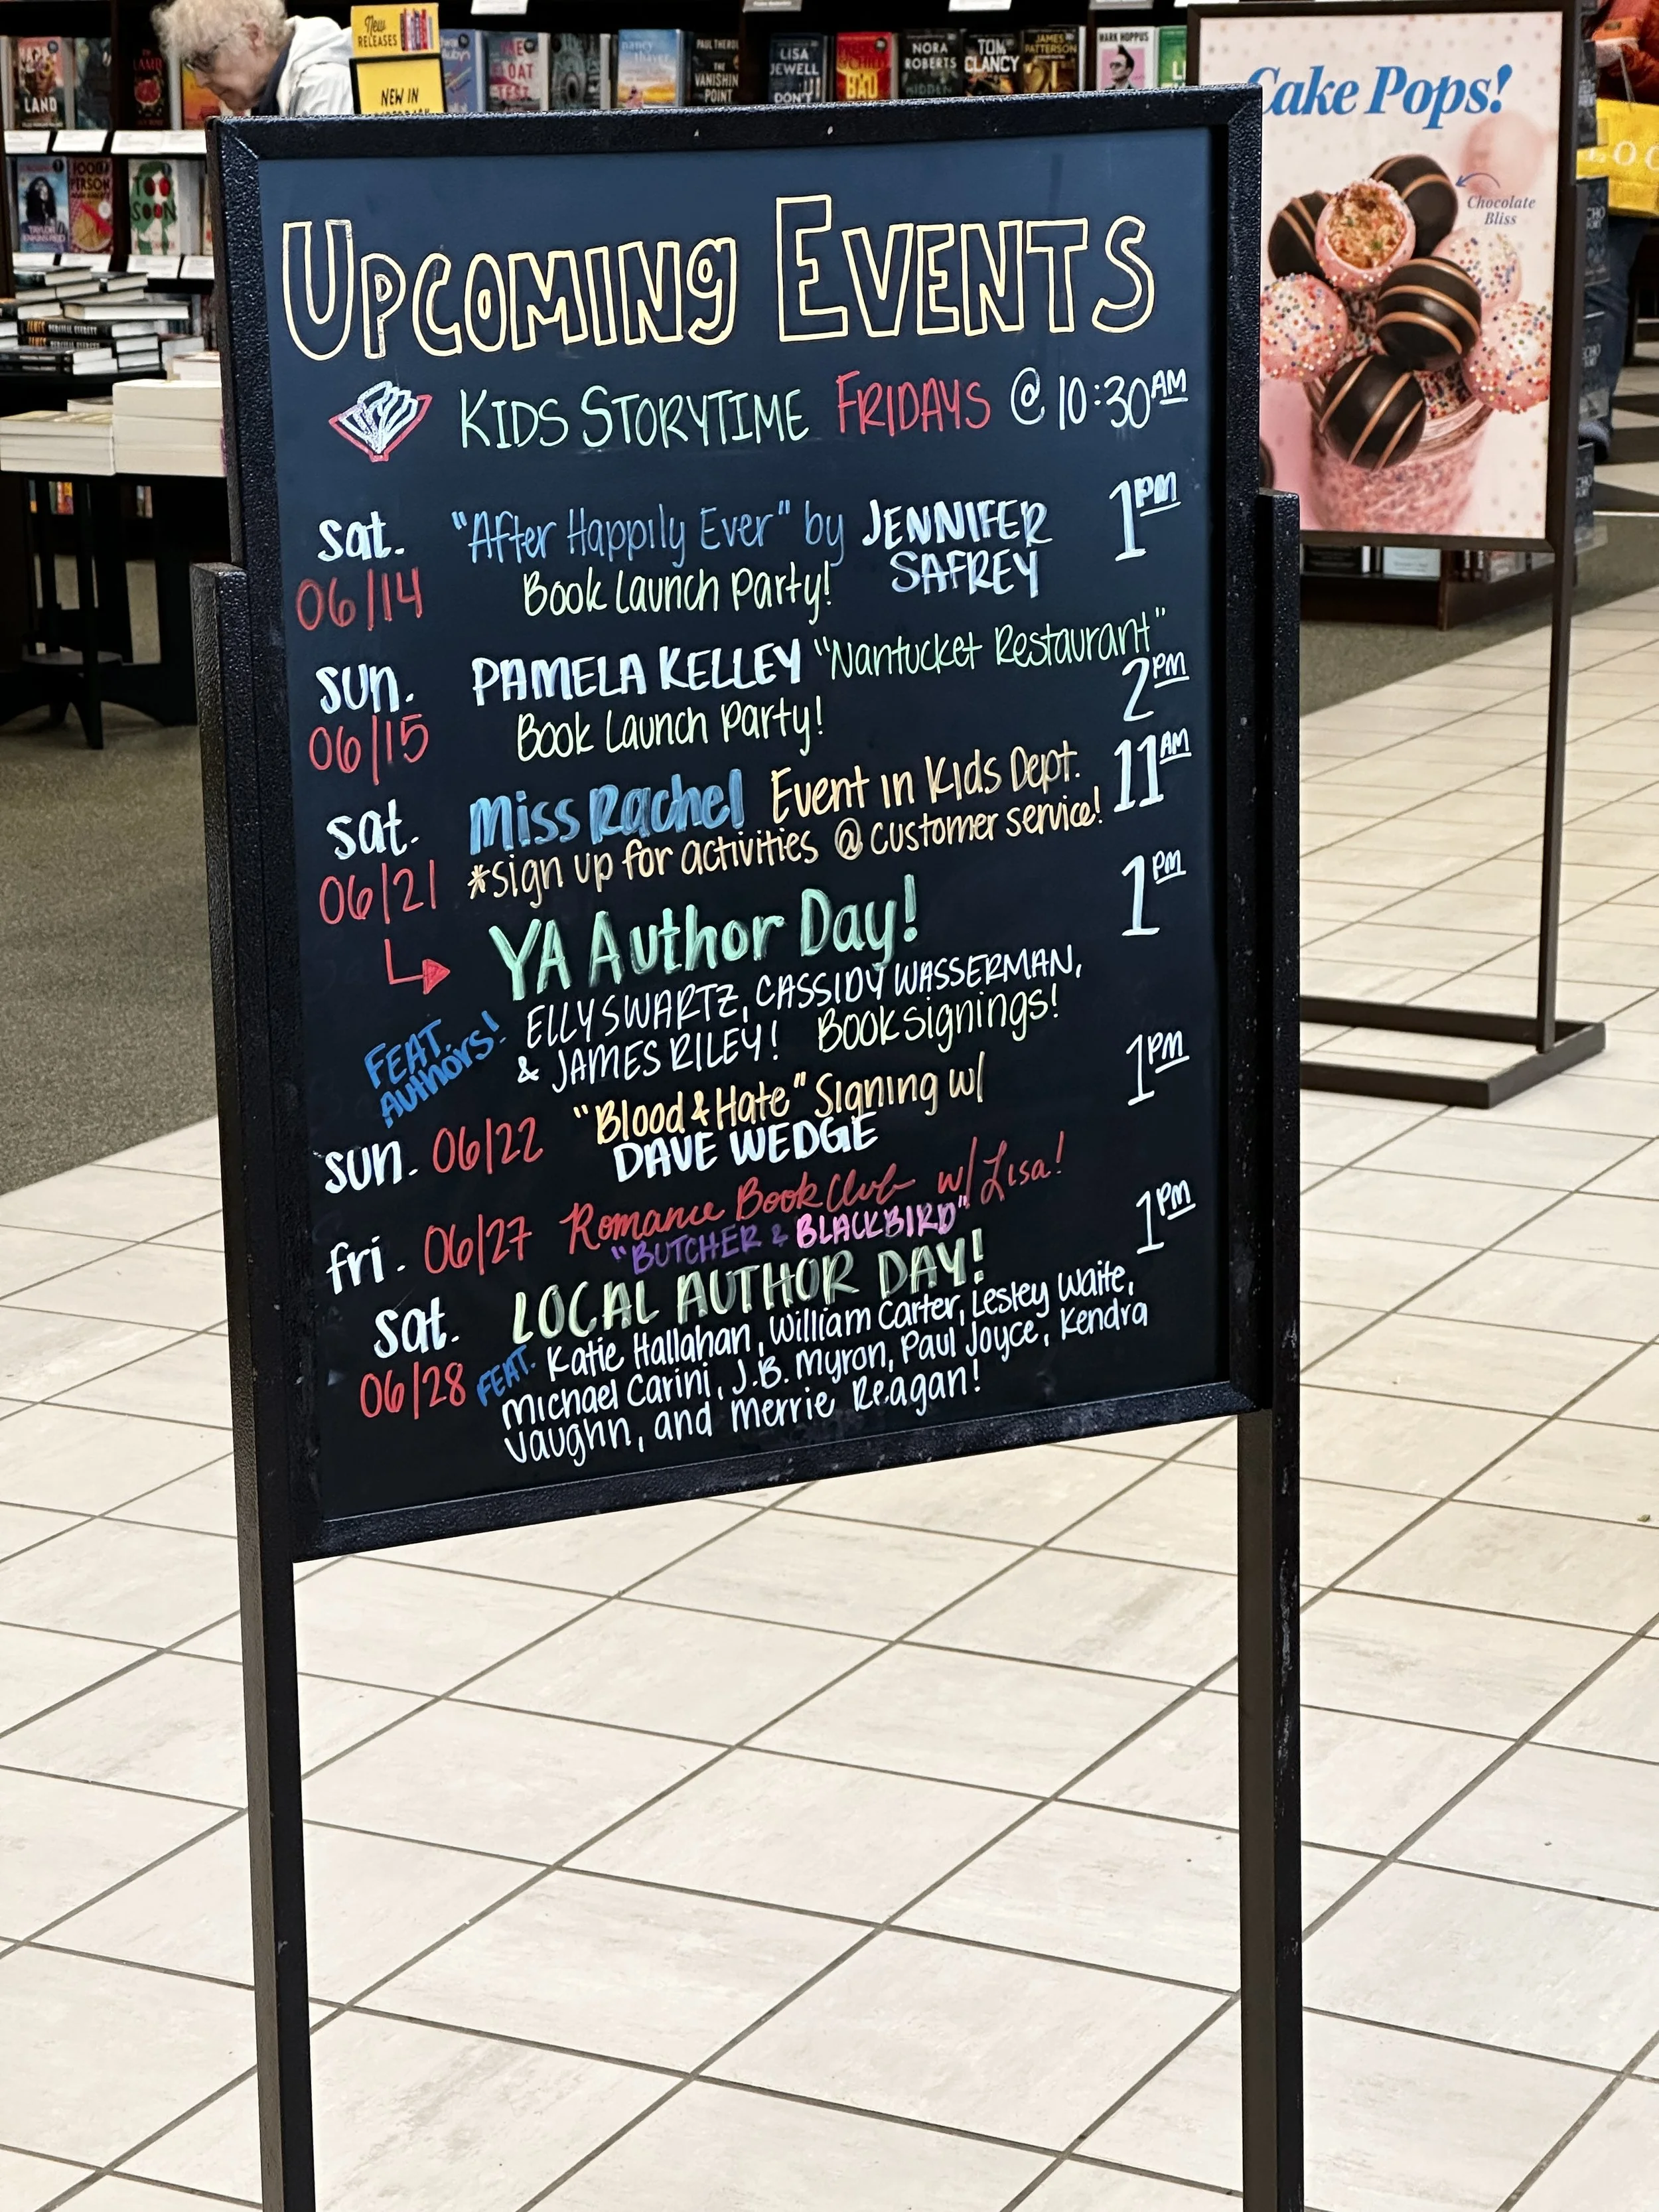 New
RELEASES
NEW IN
LAND
NORA
ROBERTS
TOM
CLANCY
JAMES
PATTERSON
MARK HOPPUS
LISA
JEWELL
DON'T
PAUL THEROUX
THE
VANISHING
POINT
FOOD
PERSON
TOO
SOON
TAYLOR
JENKINS REID
JAMES PERCIVAL EVERETT
Cake Pops!
Chocolate
Bliss
UPCOMING EVENTS
KIDS STORYTIME FRIDAYS @ 10:30AM
Sat. "After Happily Ever" by JENNIFER 1PM
SAFREY
06/14 Book Launch Party!
Sun. PAMELA KELLEY "Nantucket Restaurant"
06/15 Book Launch Party! 2PM
Sat. Miss Rachel Event in Kids Dept. 11AM
06/21 *sign up for activities @ customer service!
YA Author Day! 1PM
FEAT. AUTHORS! ELLY SWARTZ, CASSIDY WASSERMAN,
& JAMES RILEY! Book signings!
Sun. 06/22 "Blood & Hate" Signing w/ 1PM
DAVE WEDGE
fri. 06/27 Romance Book Club w/ Lisa!
"BUTCHER & BLACKBIRD"
Sat. LOCAL AUTHOR DAY! 1PM
06/28 FEAT. Katie Hallahan, William Carter, Lesley Waite,
Michael Carini, J.B. Myron, Paul Joyce, Kendra
Vaughn, and Merrie Reagan!